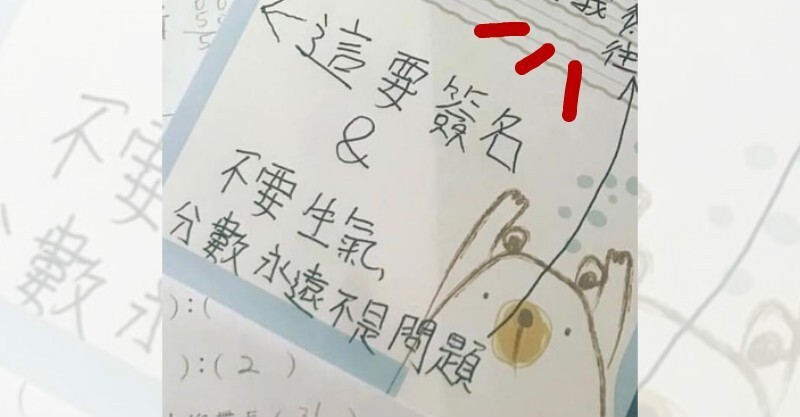 ←這要簽名
&
不要生氣,
分數永遠不是問題
往
):(
):( 2 )